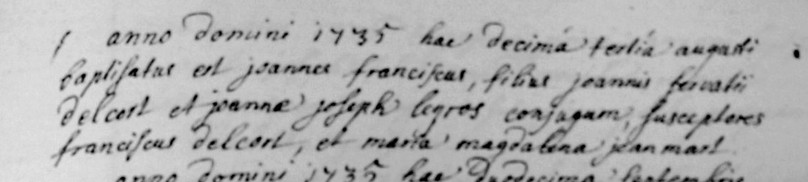 anno domini 1735 hac decimâ tertiâ augusti
baptisatus est joannes franciscus, filius joannis servatii
delcort et joannæ joseph legros conjugum, susceptores
franciscus delcort, et maria magdalena jeanmart
anno domini 1735 hac duodecima septembris